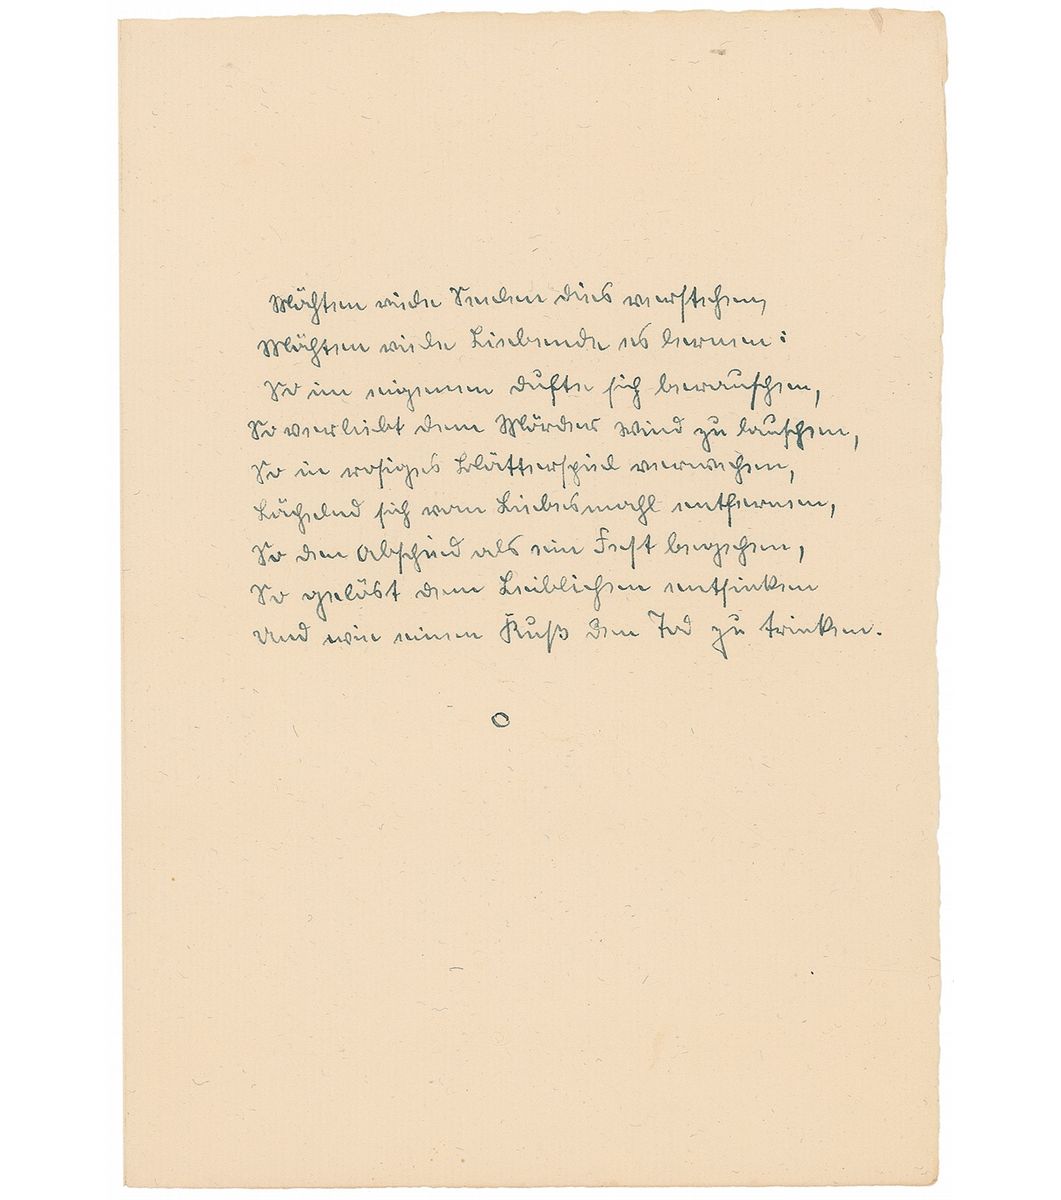 Möchten viele Seelen dies verstehen,
Möchten viele Liebende es lernen:
So im eigenen Dufte sich berauschen,
So verliebt dem Mörder Wind zu lauschen,
So in rosiges Blätterspiel verwehen,
Lächelnd sich vom Liebesmahl entfernen,
So den Abschied als ein Fest begehen,
So gelöst dem Leiblichen entsinken
Und wie einen Kuß den Tod zu trinken.